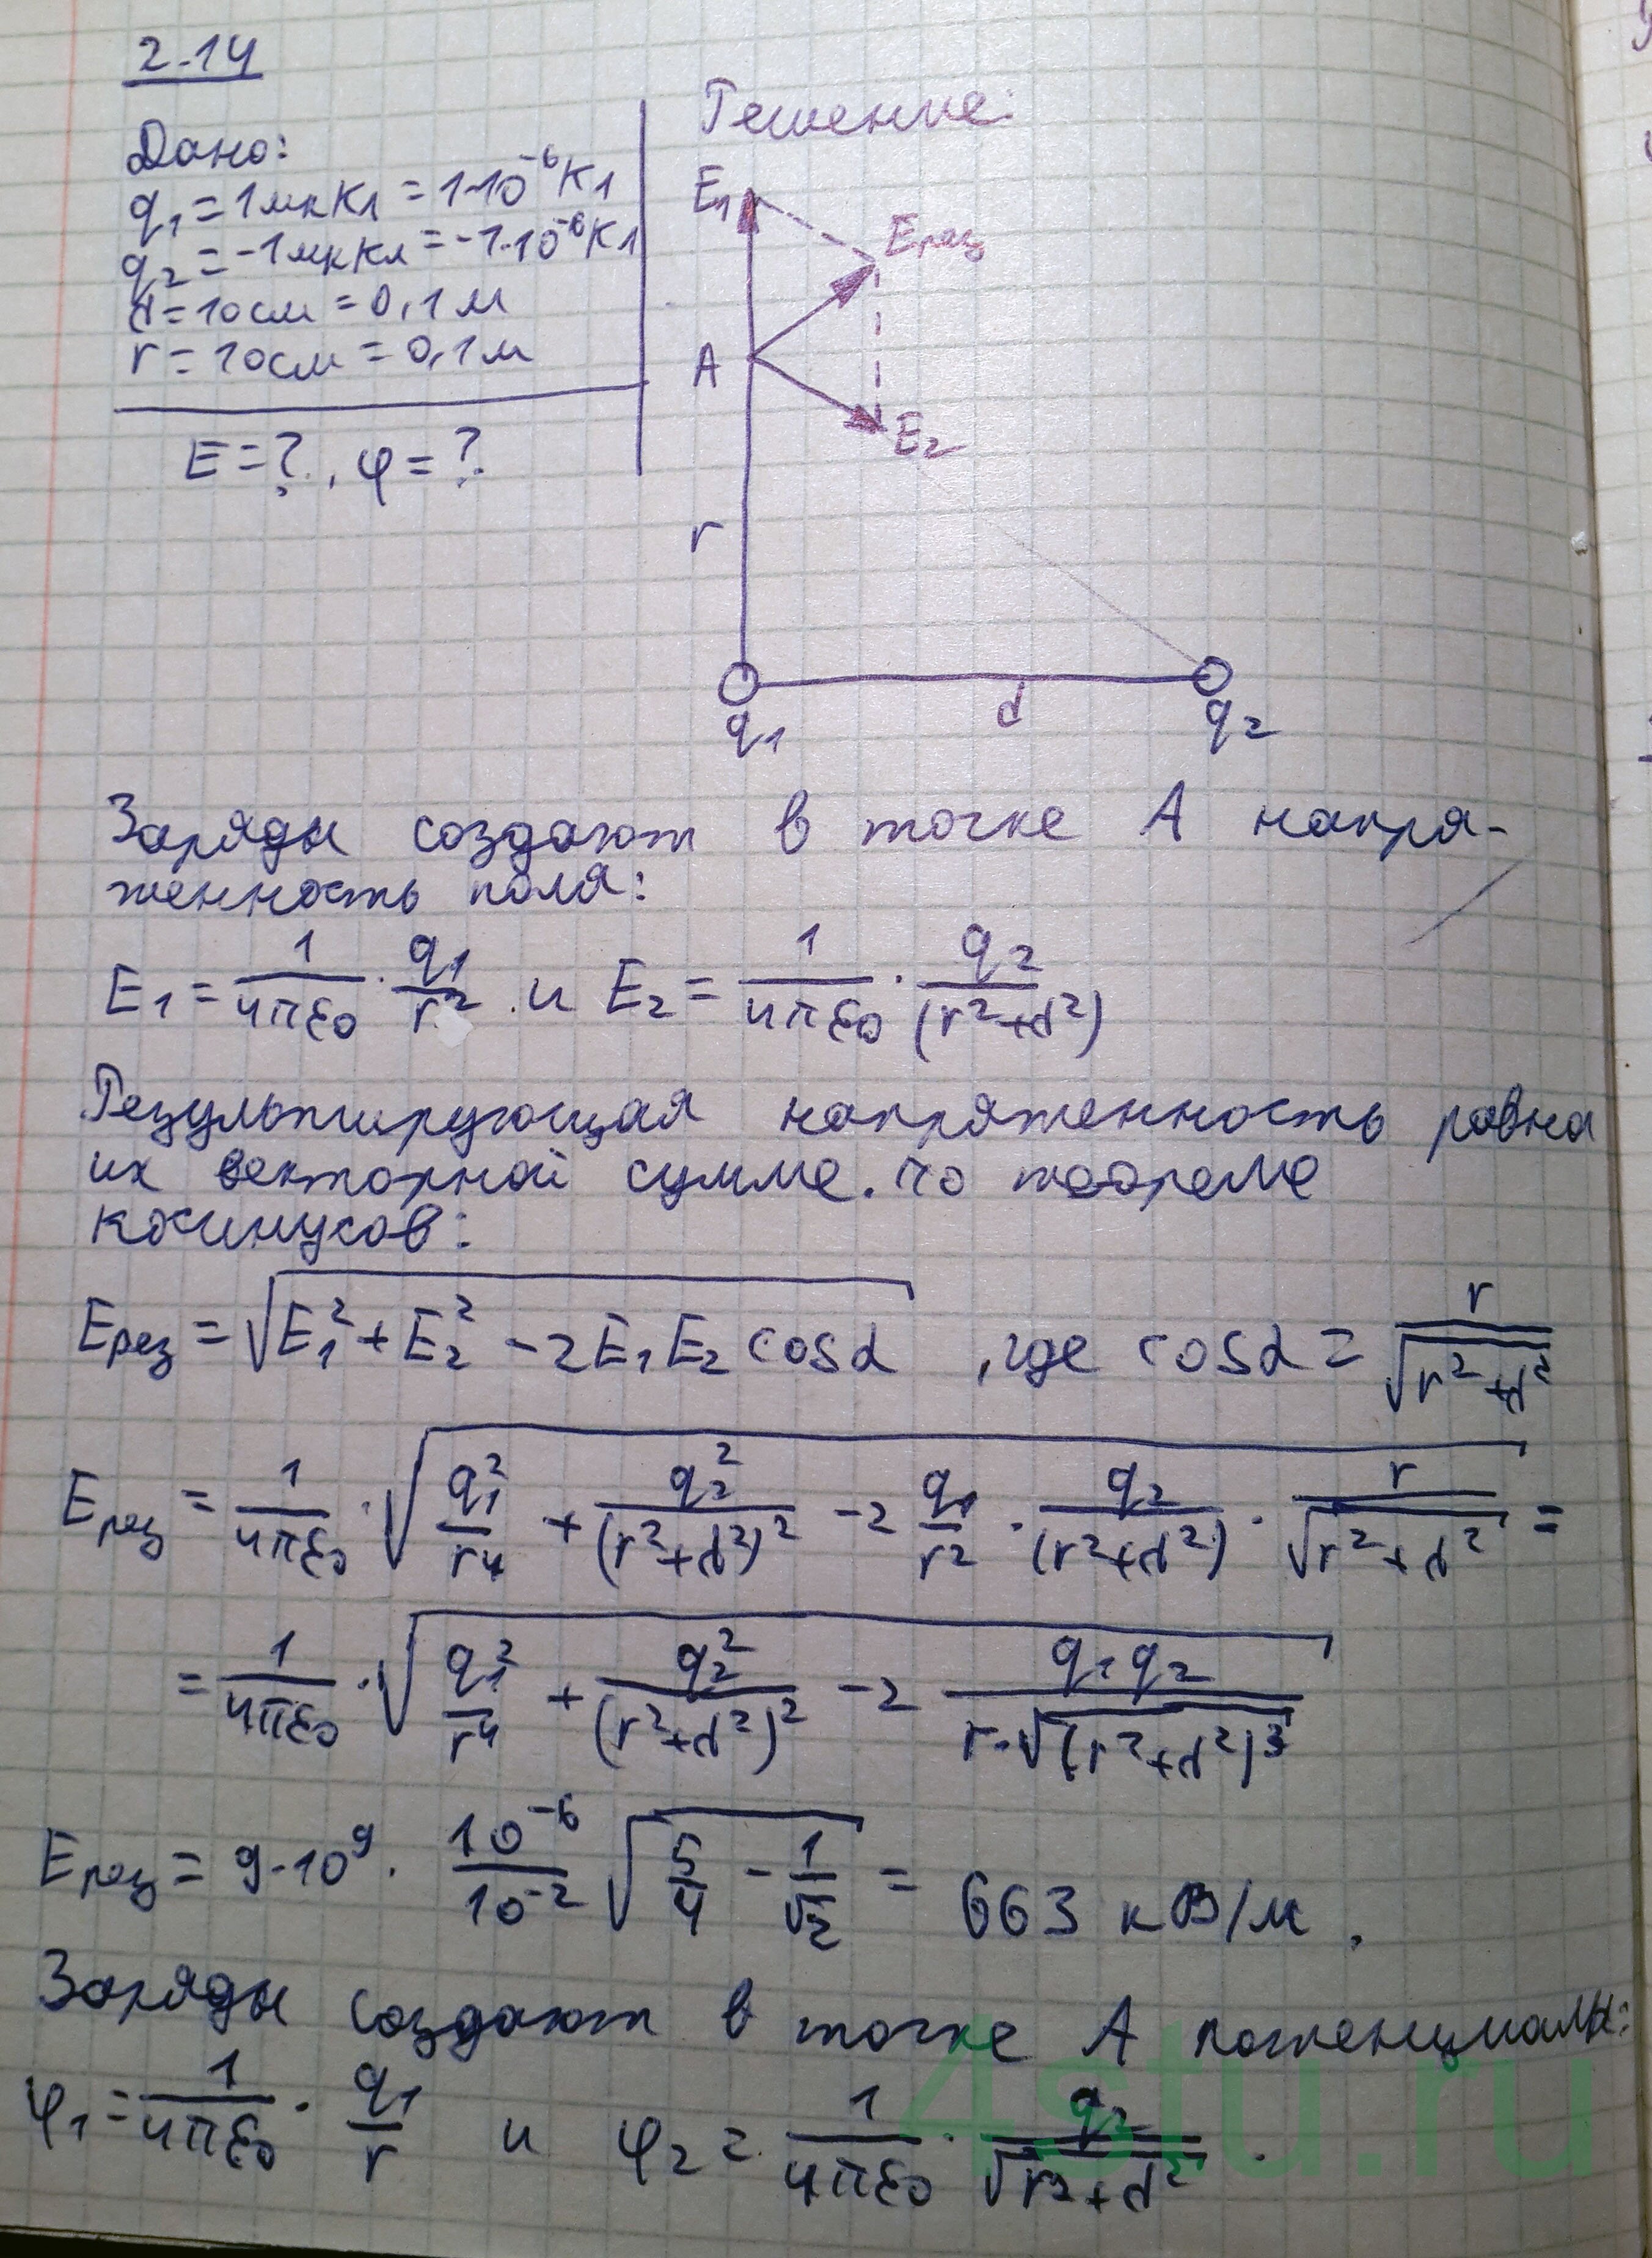 2.14
Дано:
q₁ = 1мкКл = 1·10⁻⁶Кл
q₂ = -1мкКл = -1·10⁻⁶Кл
d = 10см = 0,1м
r = 10см = 0,1м
E = ?, φ = ?
Решение:
E₁
Eрез
A
E₂
r
d
q₁
q₂
Заряды создают в точке А напря-
женность поля:
E₁ = 1/(4πε₀) · q₁/r² и E₂ = 1/(4πε₀) · q₂/(r²+d²)
Результирующая напряженность равна
их векторной сумме. По теореме
косинусов:
Eрез = √(E₁² + E₂² - 2E₁E₂cosα), где cosα = r/√(r²+d²)
Eрез = 1/(4πε₀) · √(q₁²/r⁴ + q₂²/(r²+d²)² - 2 q₁/r² · q₂/(r²+d²) · r/√(r²+d²)) =
= 1/(4πε₀) · √(q₁²/r⁴ + q₂²/(r²+d²)² - 2 q₁q₂/(r·√(r²+d²)³))
Eрез = 9·10⁹ · 10⁻⁶/10⁻² √(5/4 - 1/√2) = 663 кВ/м.
Заряды создают в точке А потенциалы:
φ₁ = 1/(4πε₀) · q₁/r и φ₂ = 1/(4πε₀) · q₂/√(r²+d²).
4stu.ru